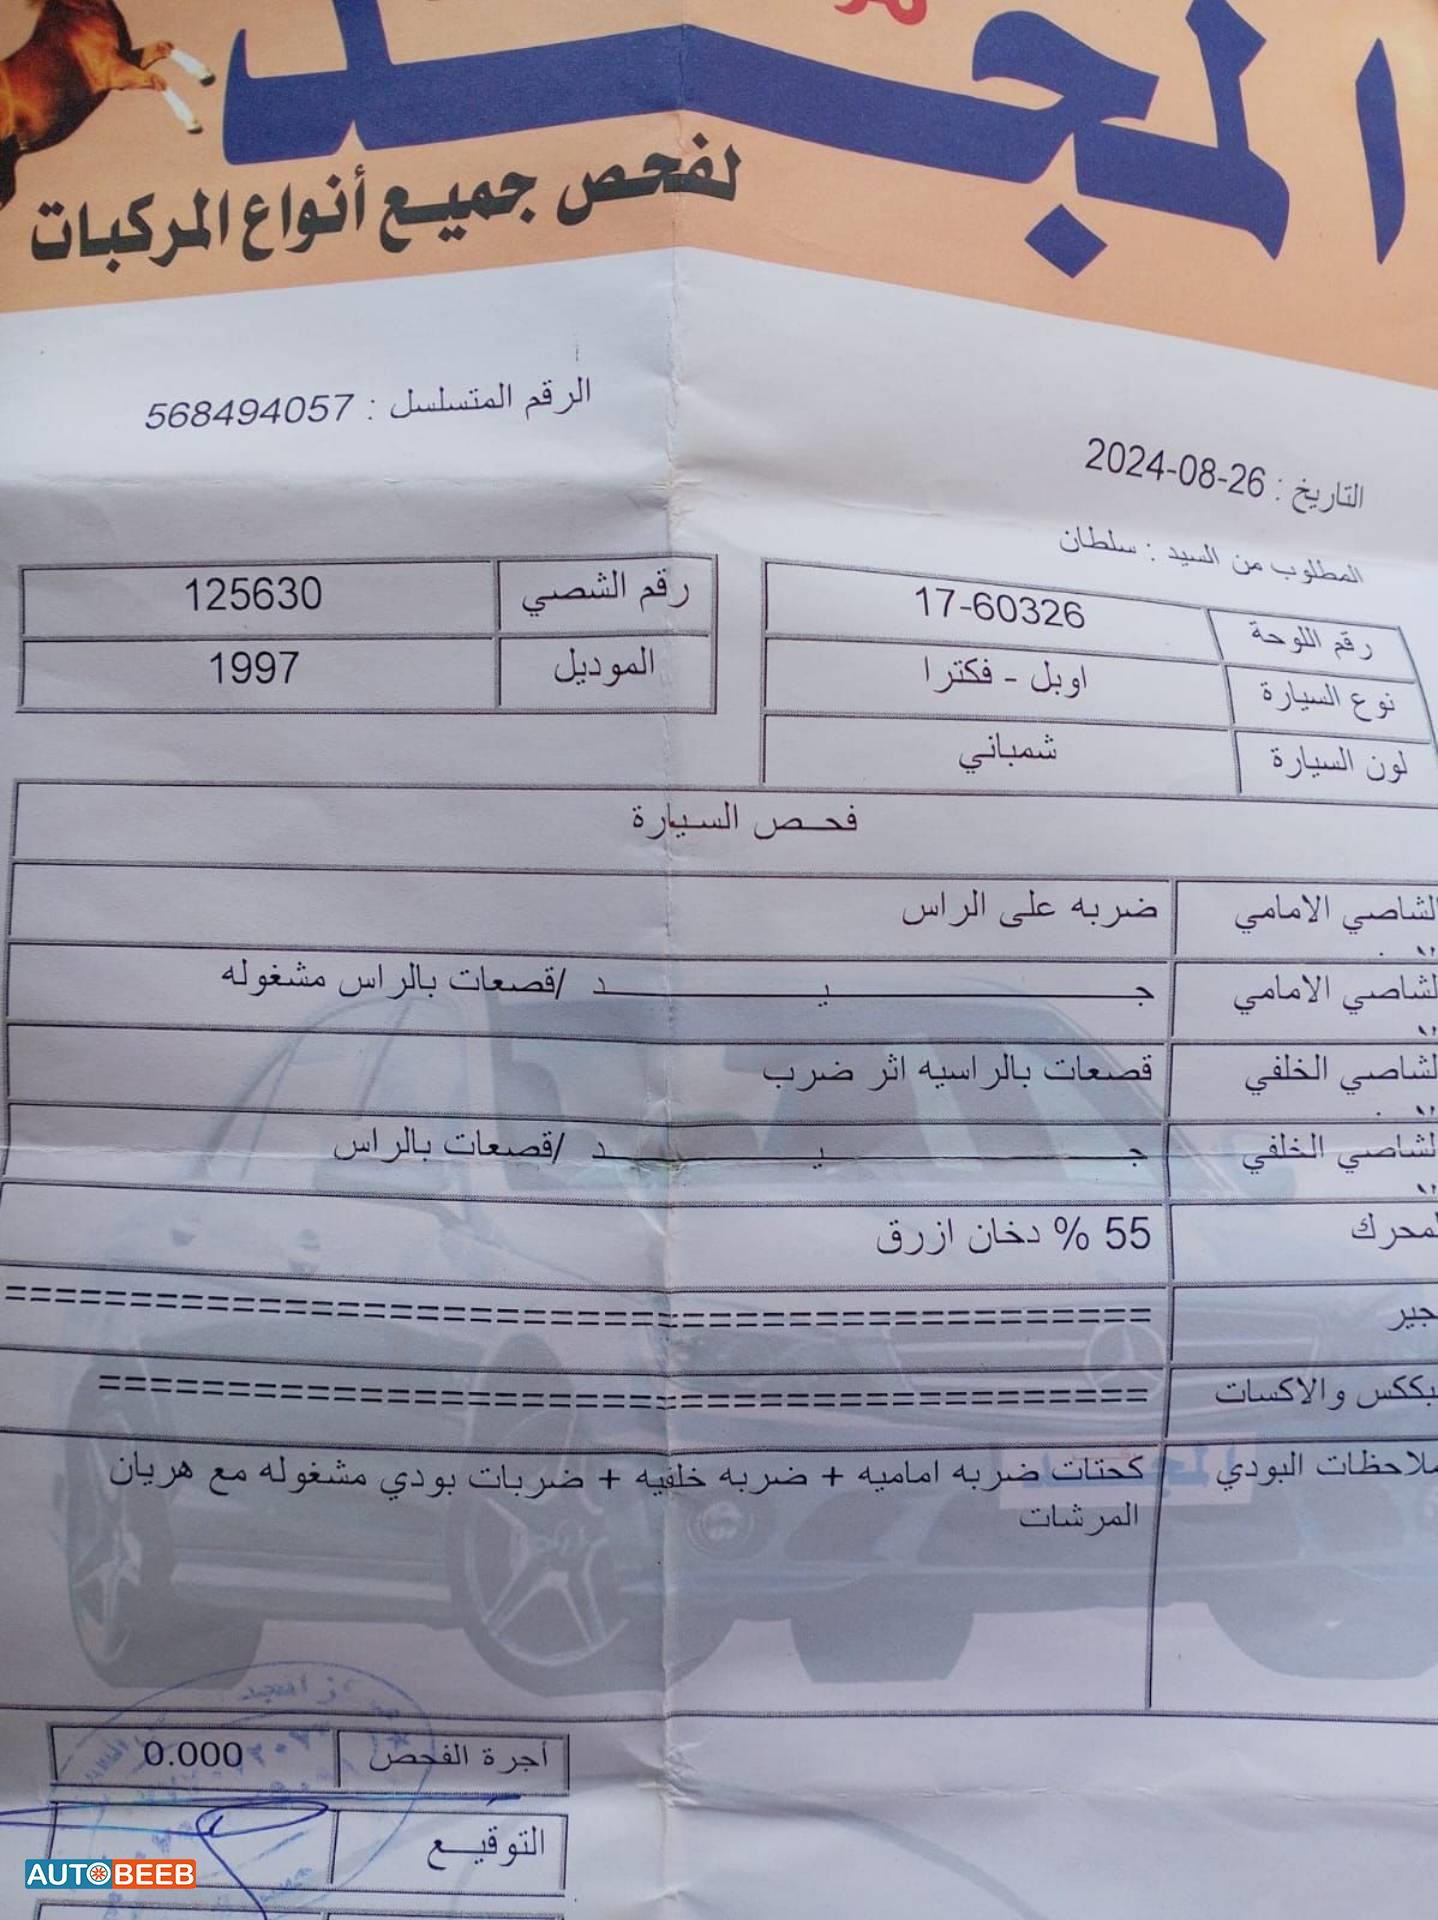 المجد
لفحص جميع أنواع المركبات
الرقم المتسلسل : 568494057
التاريخ : 2024-08-26
المطلوب من السيد : سلطان
رقم اللوحة 17-60326
رقم الشصي 125630
نوع السيارة اوبل - فكترا
الموديل 1997
لون السيارة شمباني
فحص السيارة
الشاصي الامامي ضربه على الراس
لشاصي الامامي جيد /قصعات بالراس مشغوله
لشاصي الخلفي قصعات بالراسيه اثر ضرب
لشاصي الخلفي جيد /قصعات بالراس
لمحرك 55 % دخان ازرق
جير ==========================================
بككس والاكسات ======================================
ملاحظات البودي كحتات ضربه اماميه + ضربه خلفيه + ضربات بودي مشغوله مع هريان
المرشات
أجرة الفحص 0.000
التوقيع
AUTOBEEB